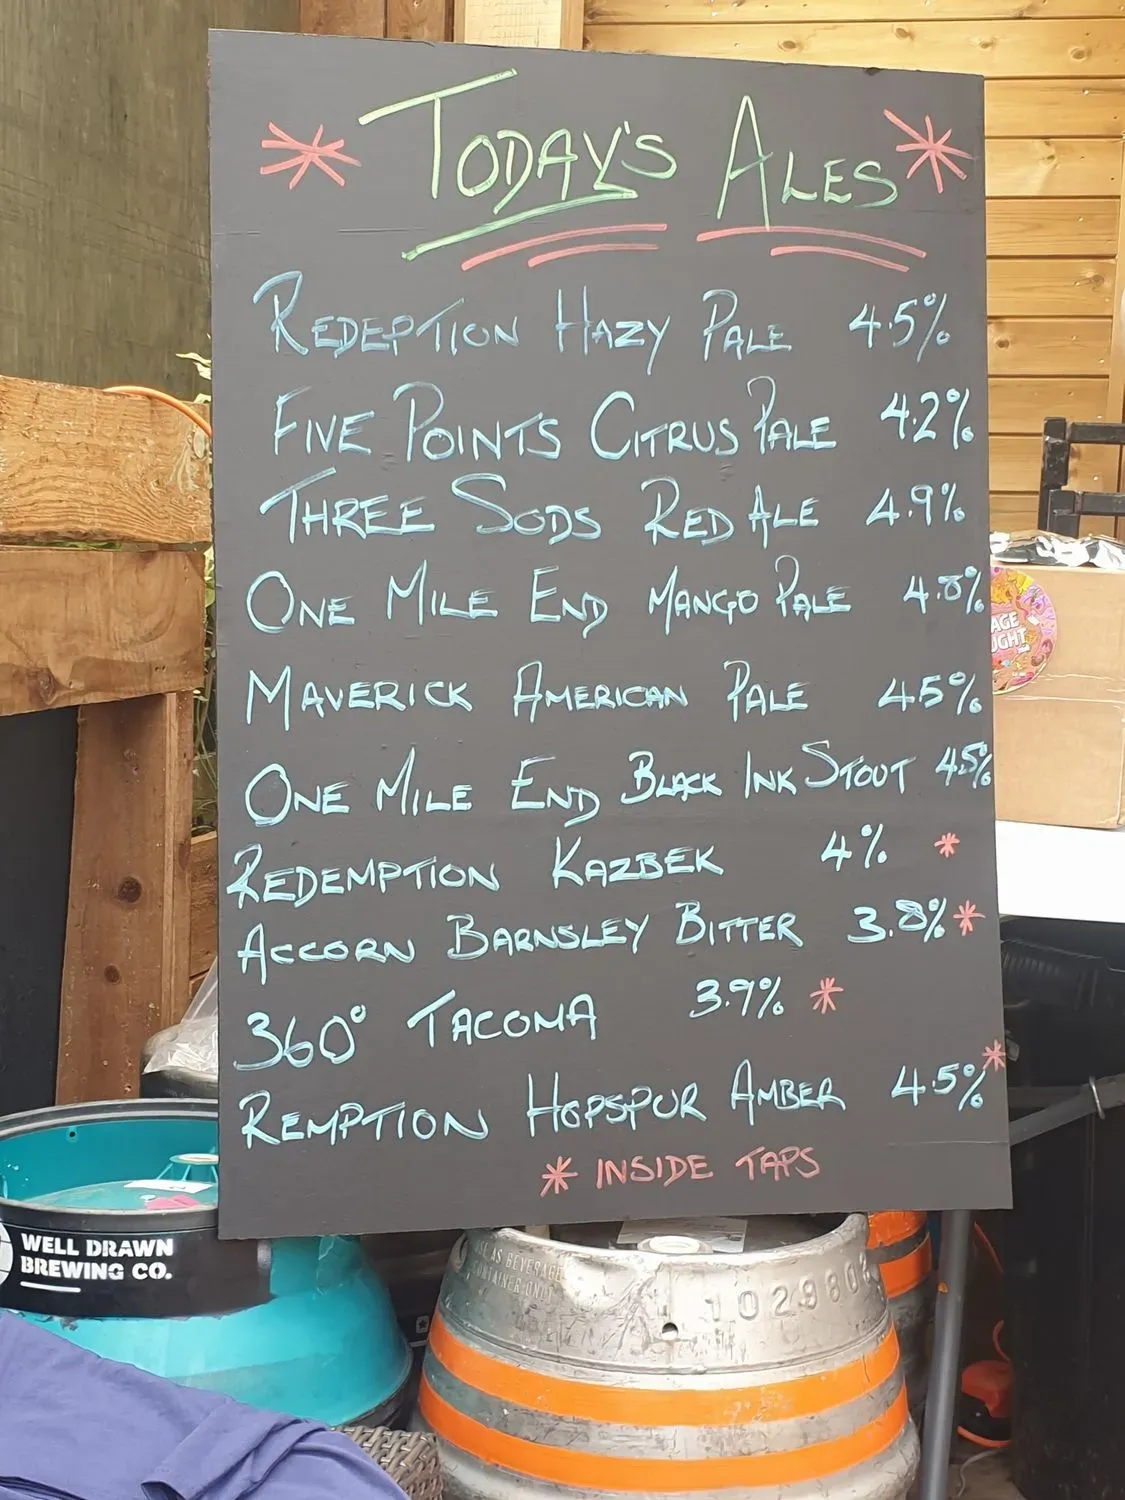 * TODAY'S ALES *
REDEPTION HAZY PALE 4.5%
FIVE POINTS CITRUS PALE 4.2%
THREE SODS RED ALE 4.9%
ONE MILE END MANGO PALE 4.8%
MAVERICK AMERICAN PALE 4.5%
ONE MILE END BLACK INK STOUT 4.5%
REDEMPTION KAZBEK 4% *
ACCORN BARNSLEY BITTER 3.8% *
360° TACOMA 3.9% *
REMPTION HOPSPUR AMBER 4.5% *
* INSIDE TAPS
WELL DRAWN
BREWING CO.
USE AS BEVERAGE
CONTAINER ONLY